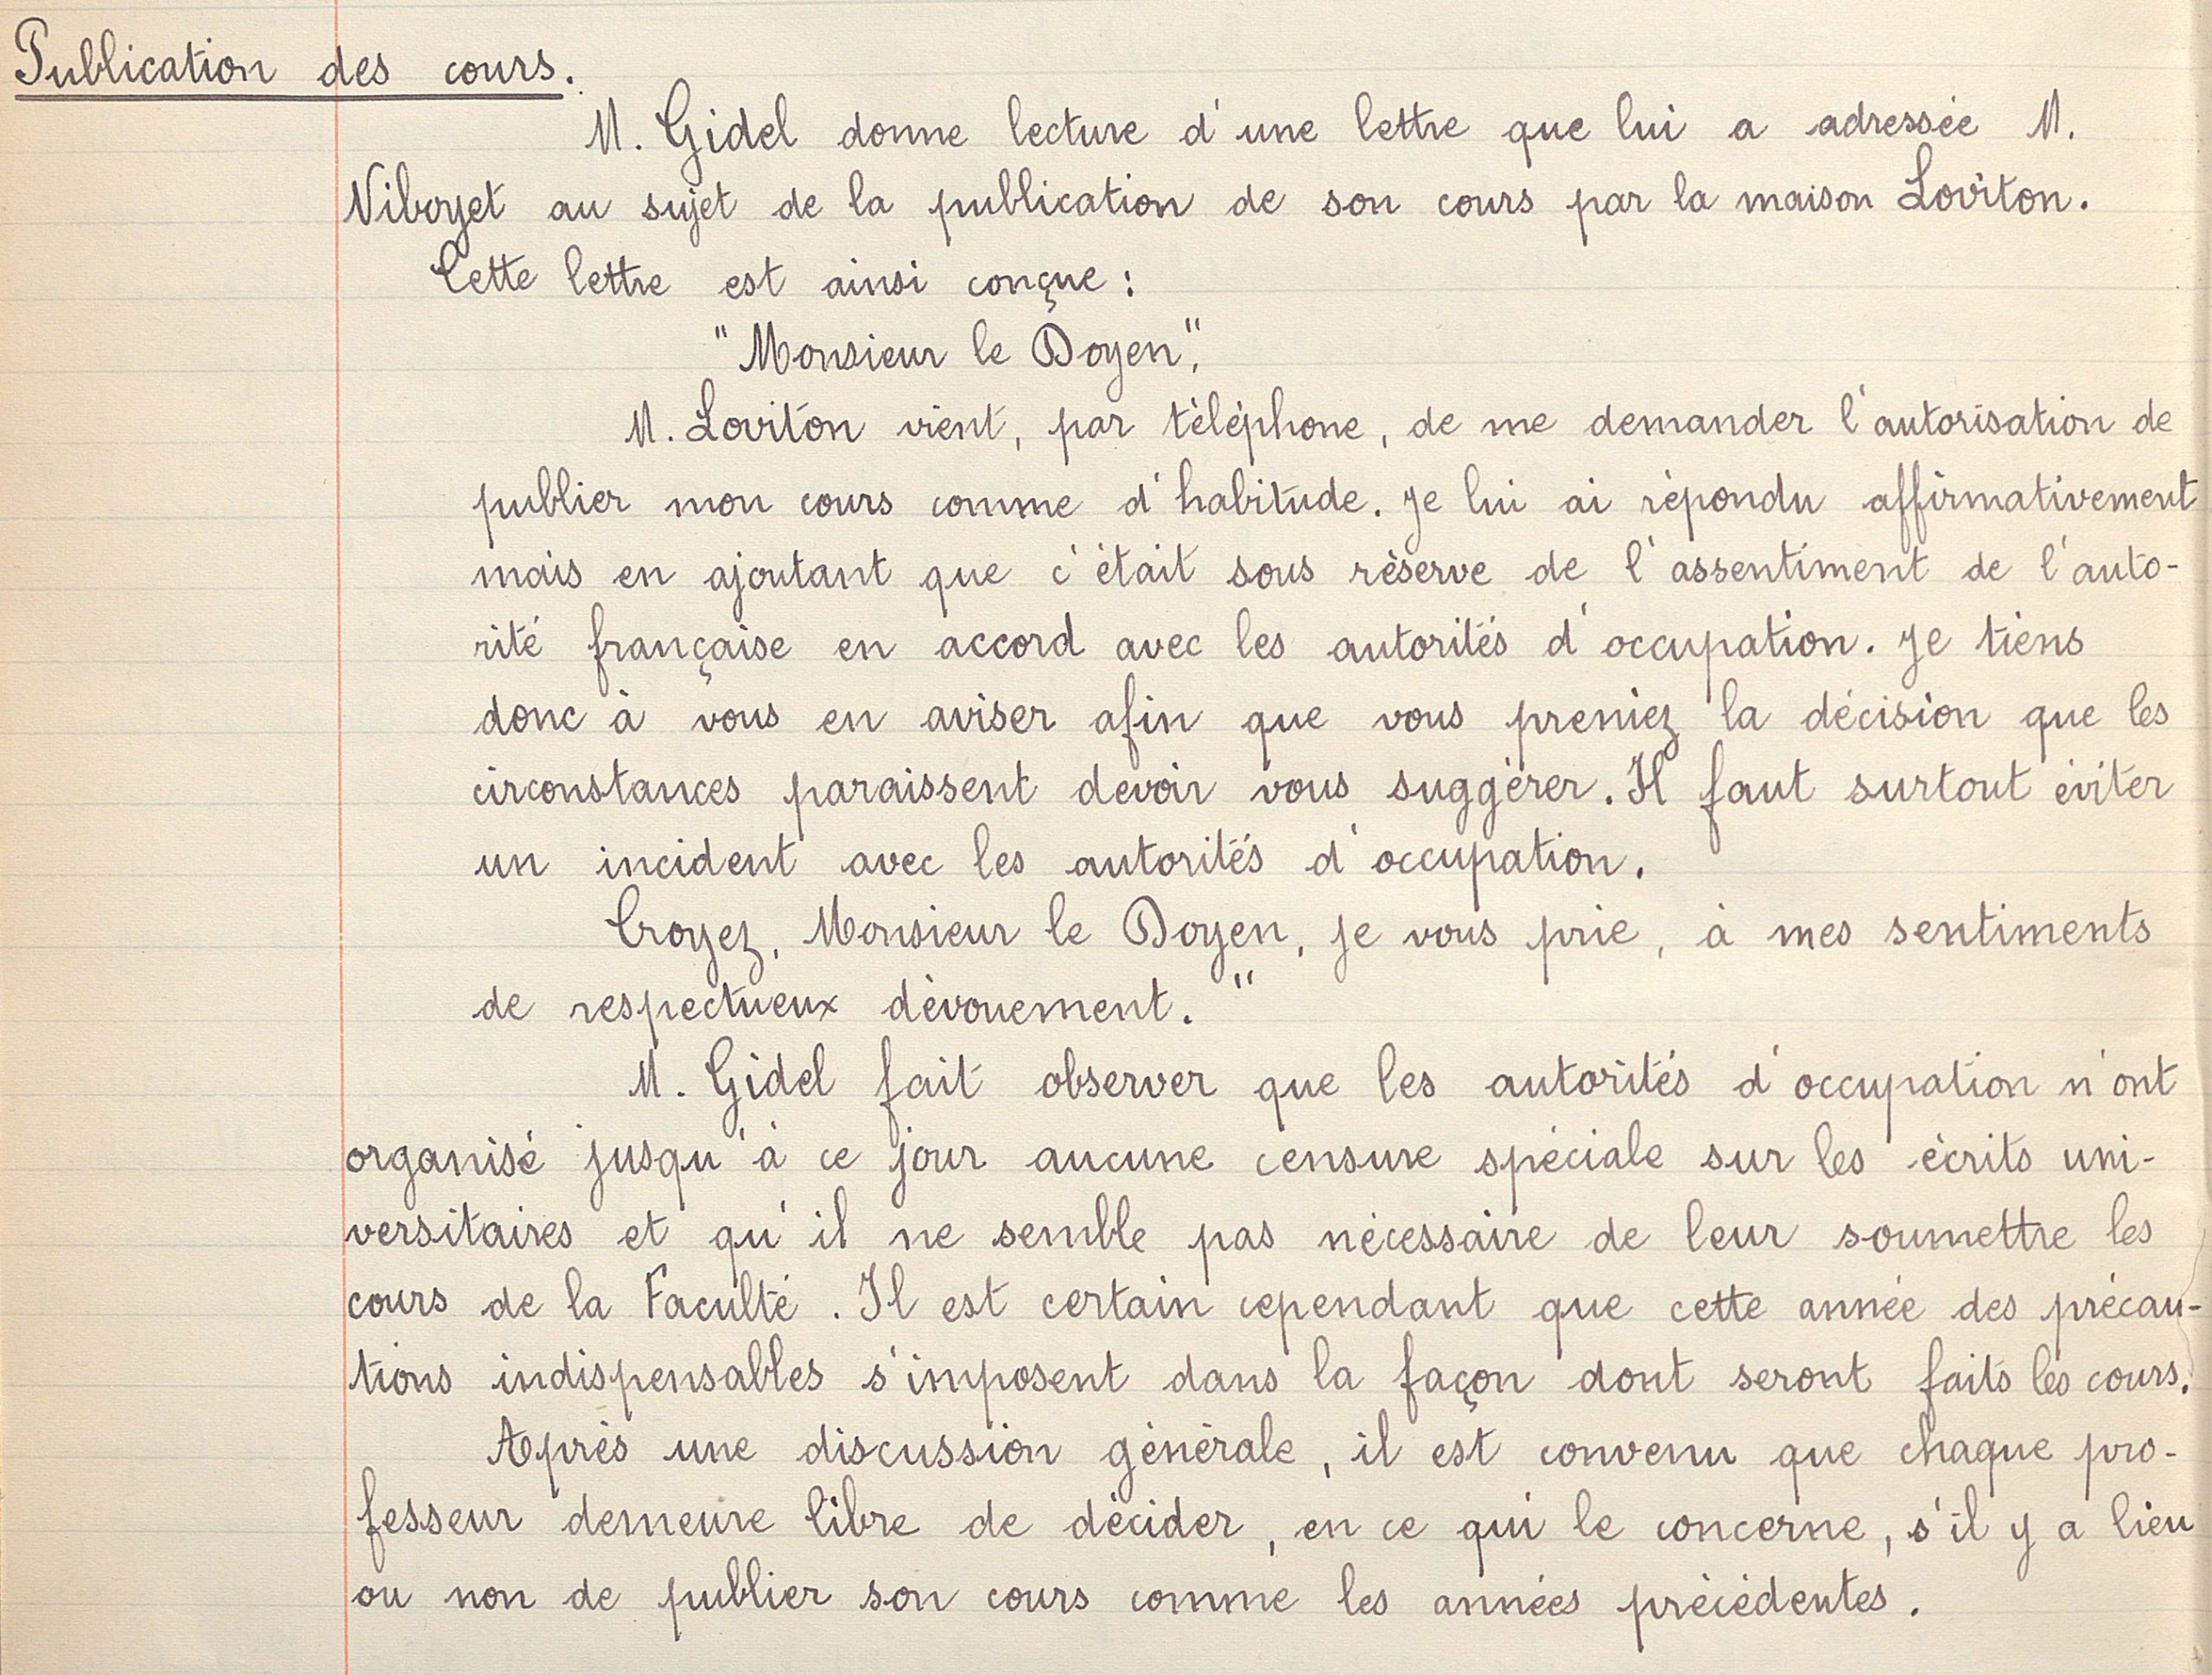 Publication des cours.
M. Gidel donne lecture d'une lettre que lui a adressée M.
Niboyet au sujet de la publication de son cours par la maison Loviton.
Cette lettre est ainsi conçue :
"Monsieur le Doyen",
M. Loviton vient, par téléphone, de me demander l'autorisation de
publier mon cours comme d'habitude. Je lui ai répondu affirmativement
mais en ajoutant que c'était sous réserve de l'assentiment de l'auto-
rité française en accord avec les autorités d'occupation. Je tiens
donc à vous en aviser afin que vous preniez la décision que les
circonstances paraissent devoir vous suggérer. Il faut surtout éviter
un incident avec les autorités d'occupation.
Croyez, Monsieur le Doyen, je vous prie, à mes sentiments
de respectueux dévouement."
M. Gidel fait observer que les autorités d'occupation n'ont
organisé jusqu'à ce jour aucune censure spéciale sur les écrits uni-
versitaires et qu'il ne semble pas nécessaire de leur soumettre les
cours de la Faculté. Il est certain cependant que cette année des précau-
tions indispensables s'imposent dans la façon dont seront faits les cours.
Après une discussion générale, il est convenu que chaque pro-
fesseur demeure libre de décider, en ce qui le concerne, s'il y a lieu
ou non de publier son cours comme les années précédentes.